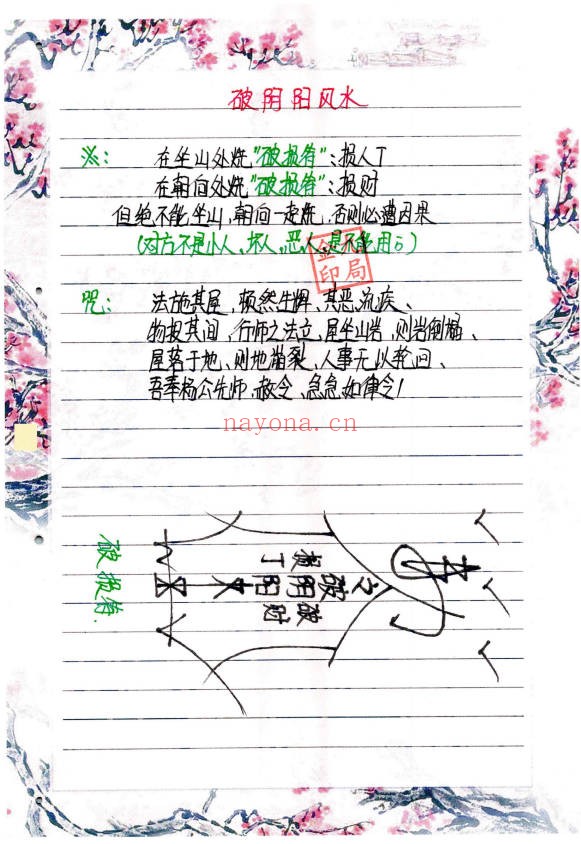 破阴阳风水
※: 在坐山处烧"破损符":损人丁
在朝向处烧"破损符":损财
但绝不能坐山、朝向一起烧,否则必遭因果
(对方不是小人、坏人、恶人,是不能用の)
金局印
咒: 法施其屋、顿然生解、其恶、流疾、
物投其间、行师之法立、屋坐山岩、则岩倒塌、
屋落于地、则地崩裂、人事无以轮回、
吾奉杨公先师、敕令、急急如律令!
nayona.cn
破损符.
损丁
立破阴阳
破财